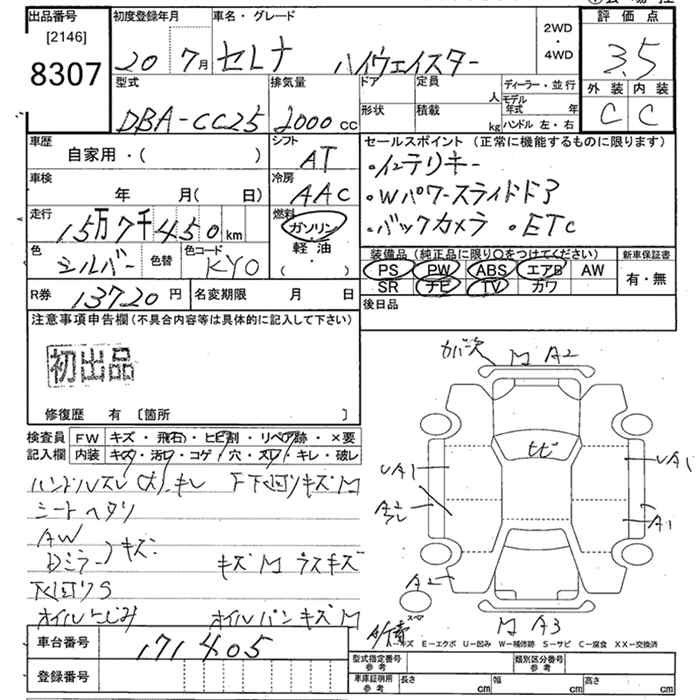 出品番号 初度登録年月 車名・グレード 2WD・4WD 評価点
[2146]
8307
20 7月 セレナ ハイウェイスター 3.5
型式 排気量 ドア 定員 人 ディーラー・並行 外装 内装
DBA-CC25 2000cc 形状 積載 kg モデル年式 年 C C
ハンドル 左・右
車歴 シフト セールスポイント (正常に機能するものに限ります)
自家用・( ) AT ・インテリキー
車検 冷房
年 月(日) AAC ・Wパワースライドドア
走行 燃料
15万7千450km ガソリン ・バックカメラ ・ETC
軽・油
( )
色 色替 色コード
シルバー KYO
装備品 (純正品に限り○をつけてください) 新車保証書
PS PW ABS エアB AW 有・無
SR ナビ TV カワ
R券 13720円 名変期限 月 日 後日品
注意事項申告欄(不具合内容等は具体的に記入して下さい)
初出品
修復歴 有 [箇所 ]
検査員 FW キズ・飛石・ヒビ割・リペア跡・×要
記入欄 内装 キズ・汚レ・コゲ・穴・スレ・キレ・破レ
ハンドルスレ(大)キレ 下下回りキズM
シートヘタリ
AW
Dミラー キズ キズM ラスキズ
下回りS
オイルにじみ オイルパンキズM
M A2
ヒビ
UA1 UA1
A2
A1
A2
M A3
A-キズ E-エクボ U-凹み W-補修跡 S-サビ C-腐食 XX-交換済
車台番号 171405
登録番号
型式指定番号 参考 類別区分番号 参考
車庫証明用 参考 長さ cm 幅 cm 高さ cm